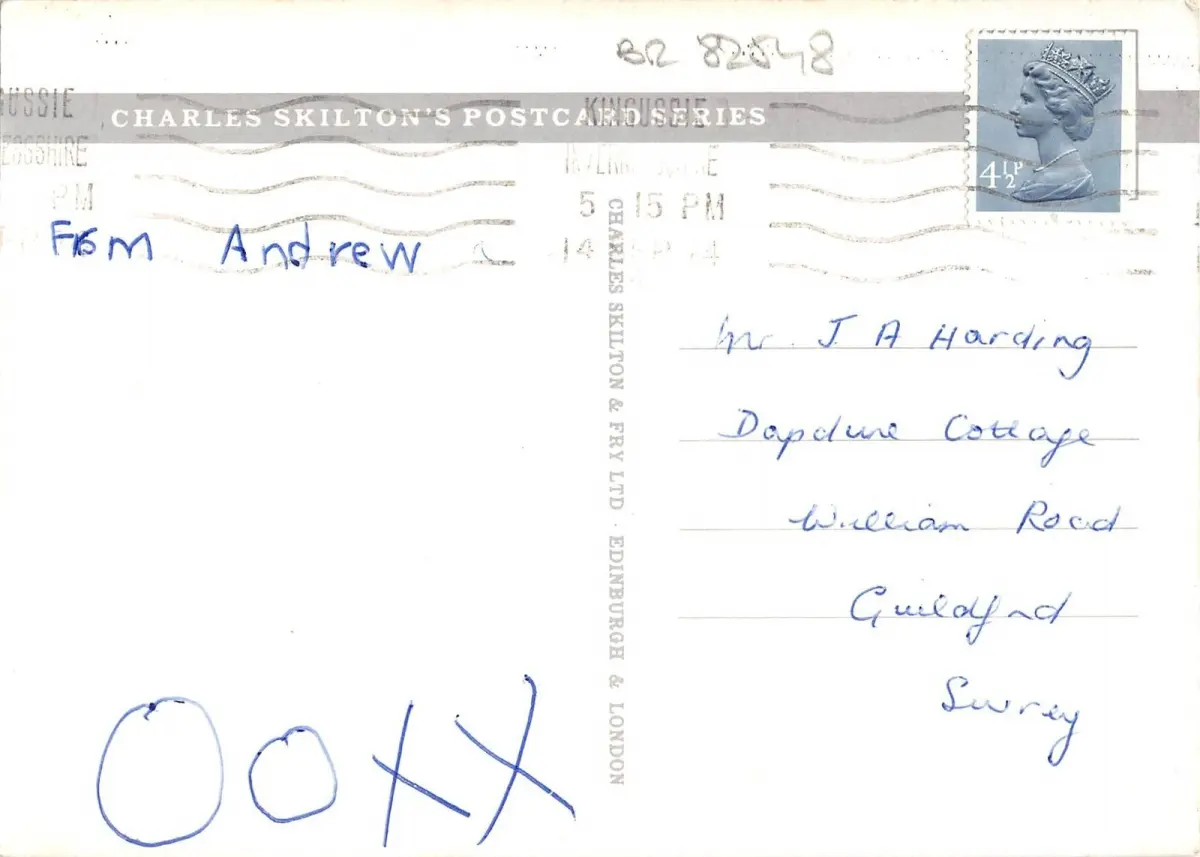 BR 82548
CHARLES SKILTON'S POSTCARD SERIES
GUSSIE
KINGUSSIE
INVERNESSSHIRE
PM
5 15 PM
14 SEP 74
4½P
From Andrew
CHARLES SKILTON & FRY LTD · EDINBURGH & LONDON
Mr. J A Harding
Dapdune Cottage
William Road
Guildford
Surrey
OOXX